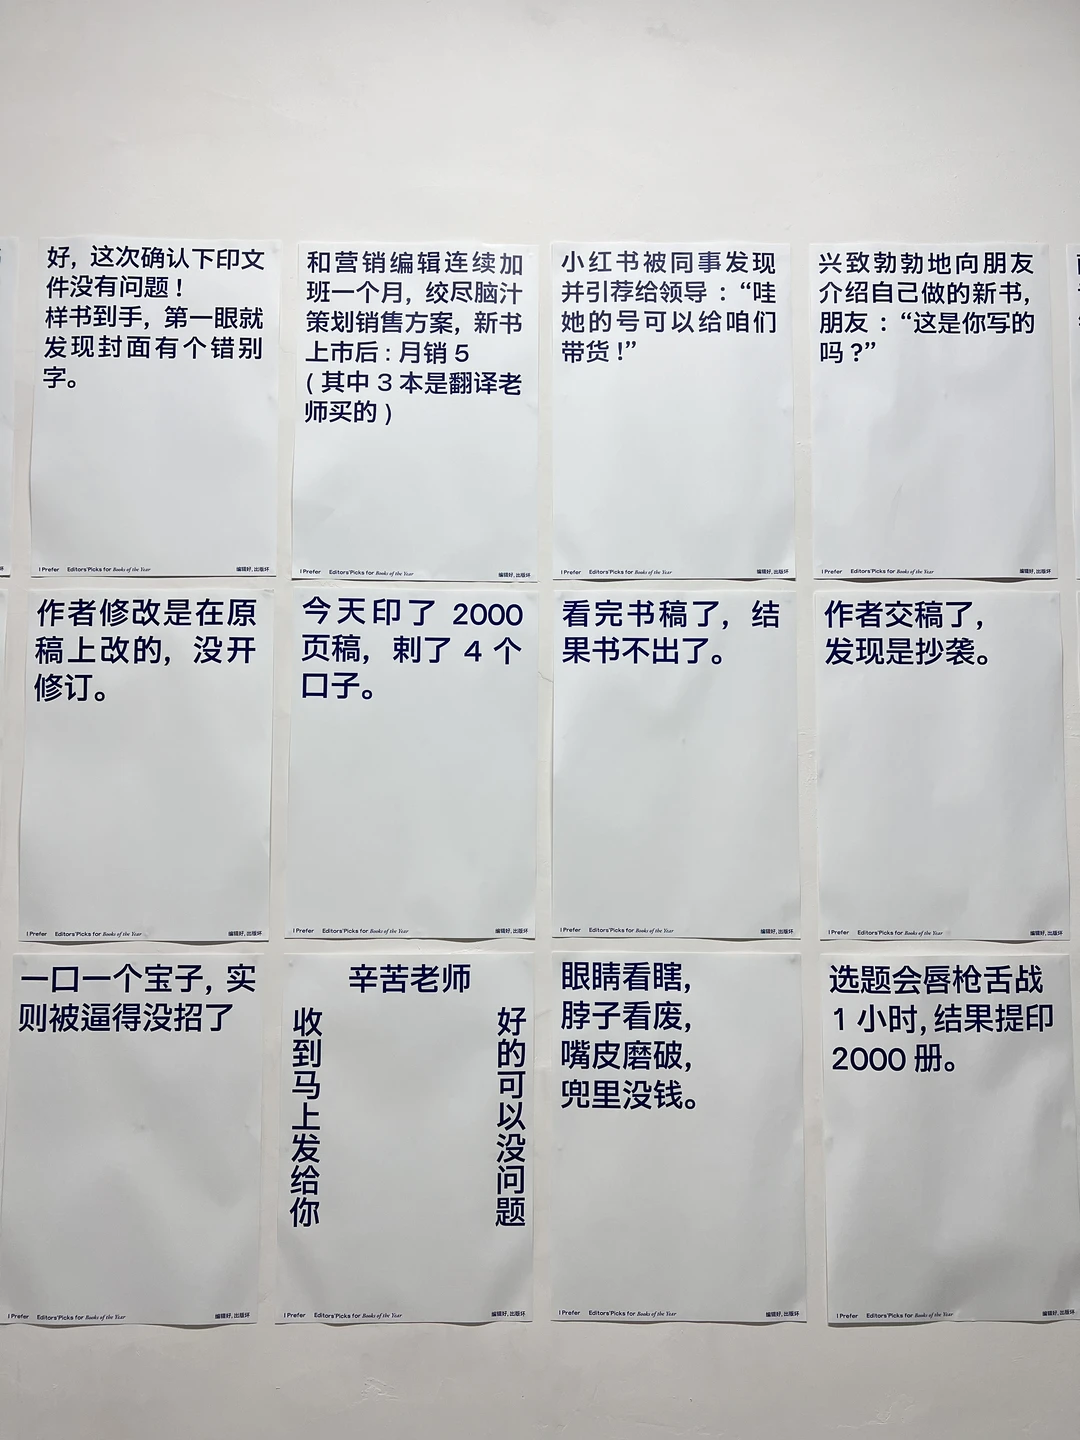 好，这次确认下印文
件没有问题！
样书到手，第一眼就
发现封面有个错别
字。
I Prefer Editors'Picks for Books of the Year 编辑好，出版坏
和营销编辑连续加
班一个月，绞尽脑汁
策划销售方案，新书
上市后：月销 5
（其中 3 本是翻译老
师买的）
I Prefer Editors'Picks for Books of the Year 编辑好，出版坏
小红书被同事发现
并引荐给领导：“哇
她的号可以给咱们
带货！”
I Prefer Editors'Picks for Books of the Year 编辑好，出版坏
兴致勃勃地向朋友
介绍自己做的新书，
朋友：“这是你写的
吗？”
I Prefer Editors'Picks for Books of the Year 编辑好，出版坏
作者修改是在原
稿上改的，没开
修订。
I Prefer Editors'Picks for Books of the Year 编辑好，出版坏
今天印了 2000
页稿，剌了 4 个
口子。
I Prefer Editors'Picks for Books of the Year 编辑好，出版坏
看完书稿了，结
果书不出了。
I Prefer Editors'Picks for Books of the Year 编辑好，出版坏
作者交稿了，
发现是抄袭。
I Prefer Editors'Picks for Books of the Year 编辑好，出版坏
一口一个宝子，实
则被逼得没招了
I Prefer Editors'Picks for Books of the Year 编辑好，出版坏
辛苦老师
好的可以没问题
收到马上发给你
I Prefer Editors'Picks for Books of the Year 编辑好，出版坏
眼睛看瞎，
脖子看废，
嘴皮磨破，
兜里没钱。
I Prefer Editors'Picks for Books of the Year 编辑好，出版坏
选题会唇枪舌战
1 小时，结果提印
2000 册。
I Prefer Editors'Picks for Books of the Year 编辑好，出版坏